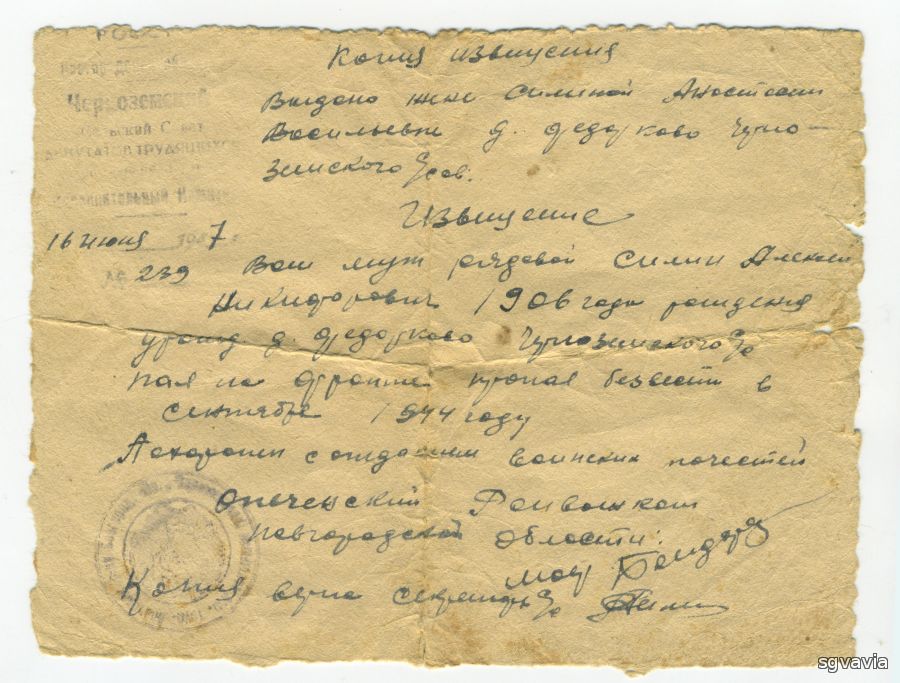 РСФСР
Черноземский
Сельский Совет
депутатов трудящихся
Исполнительный Комитет
16 июня 1947 г.
№ 239
Копия извищения
Выдано жене Силиной Анастасии
Васильевне д. Федорково Черно-
земского с/сов.
Извищение
Ваш муж рядовой Силин Алексей
Никифорович 1906 года рождения
урожд. д. Федорково Черноземского с/с
пал на фронте пропал безвести в
сентябре 1944 году
Похоронен с отданием воинских почестей
Опеченский Райвоенком
Новгородской области:
Копия верна секретарь с/с
sgvavia